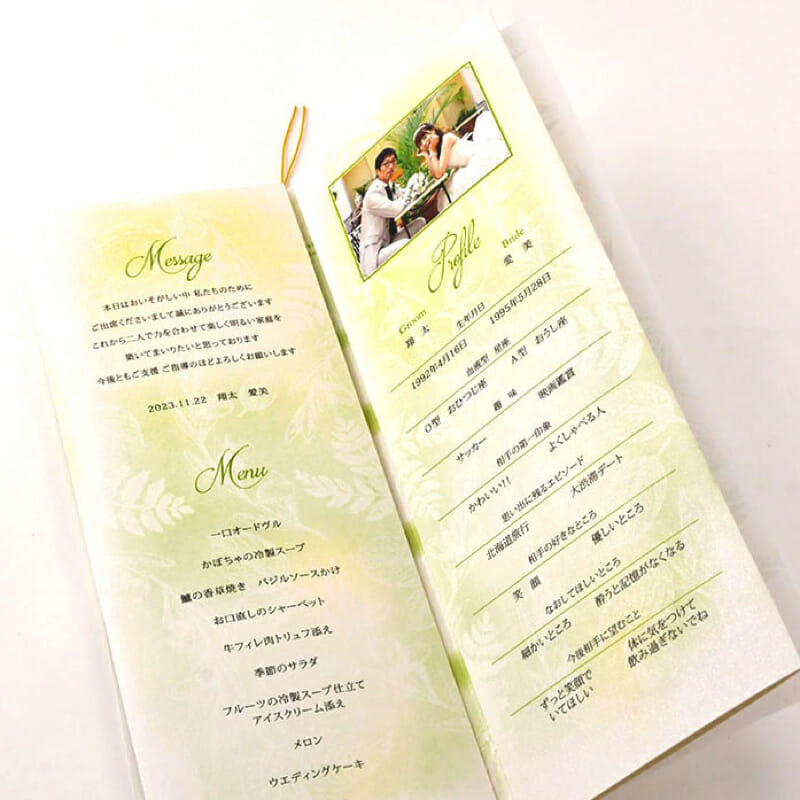 Message
本日はおいそがしい中 私たちのために
ご出席くださいまして誠にありがとうございます
これから二人で力を合わせて楽しく明るい家庭を
築いてまいりたいと思っております
今後ともご支援 ご指導のほどよろしくお願いします
2023.11.22 翔太 愛美
Menu
一口オードヴル
かぼちゃの冷製スープ
鱸の香草焼き バジルソースかけ
お口直しのシャーベット
牛フィレ肉トリュフ添え
季節のサラダ
フルーツの冷製スープ仕立て
アイスクリーム添え
メロン
ウエディングケーキ
Profile
Groom Bride
翔太 愛美
生年月日
1992年4月16日 1995年5月28日
血液型 星座
O型 おひつじ座 A型 おうし座
趣味
サッカー 映画鑑賞
相手の第一印象
かわいい!! よくしゃべる人
思い出に残るエピソード
北海道旅行 大渋滞デート
相手の好きなところ
笑顔 優しいところ
なおしてほしいところ
細かいところ 酔うと記憶がなくなる
今後相手に望むこと
ずっと笑顔で 体に気をつけて
いてほしい 飲み過ぎないでね